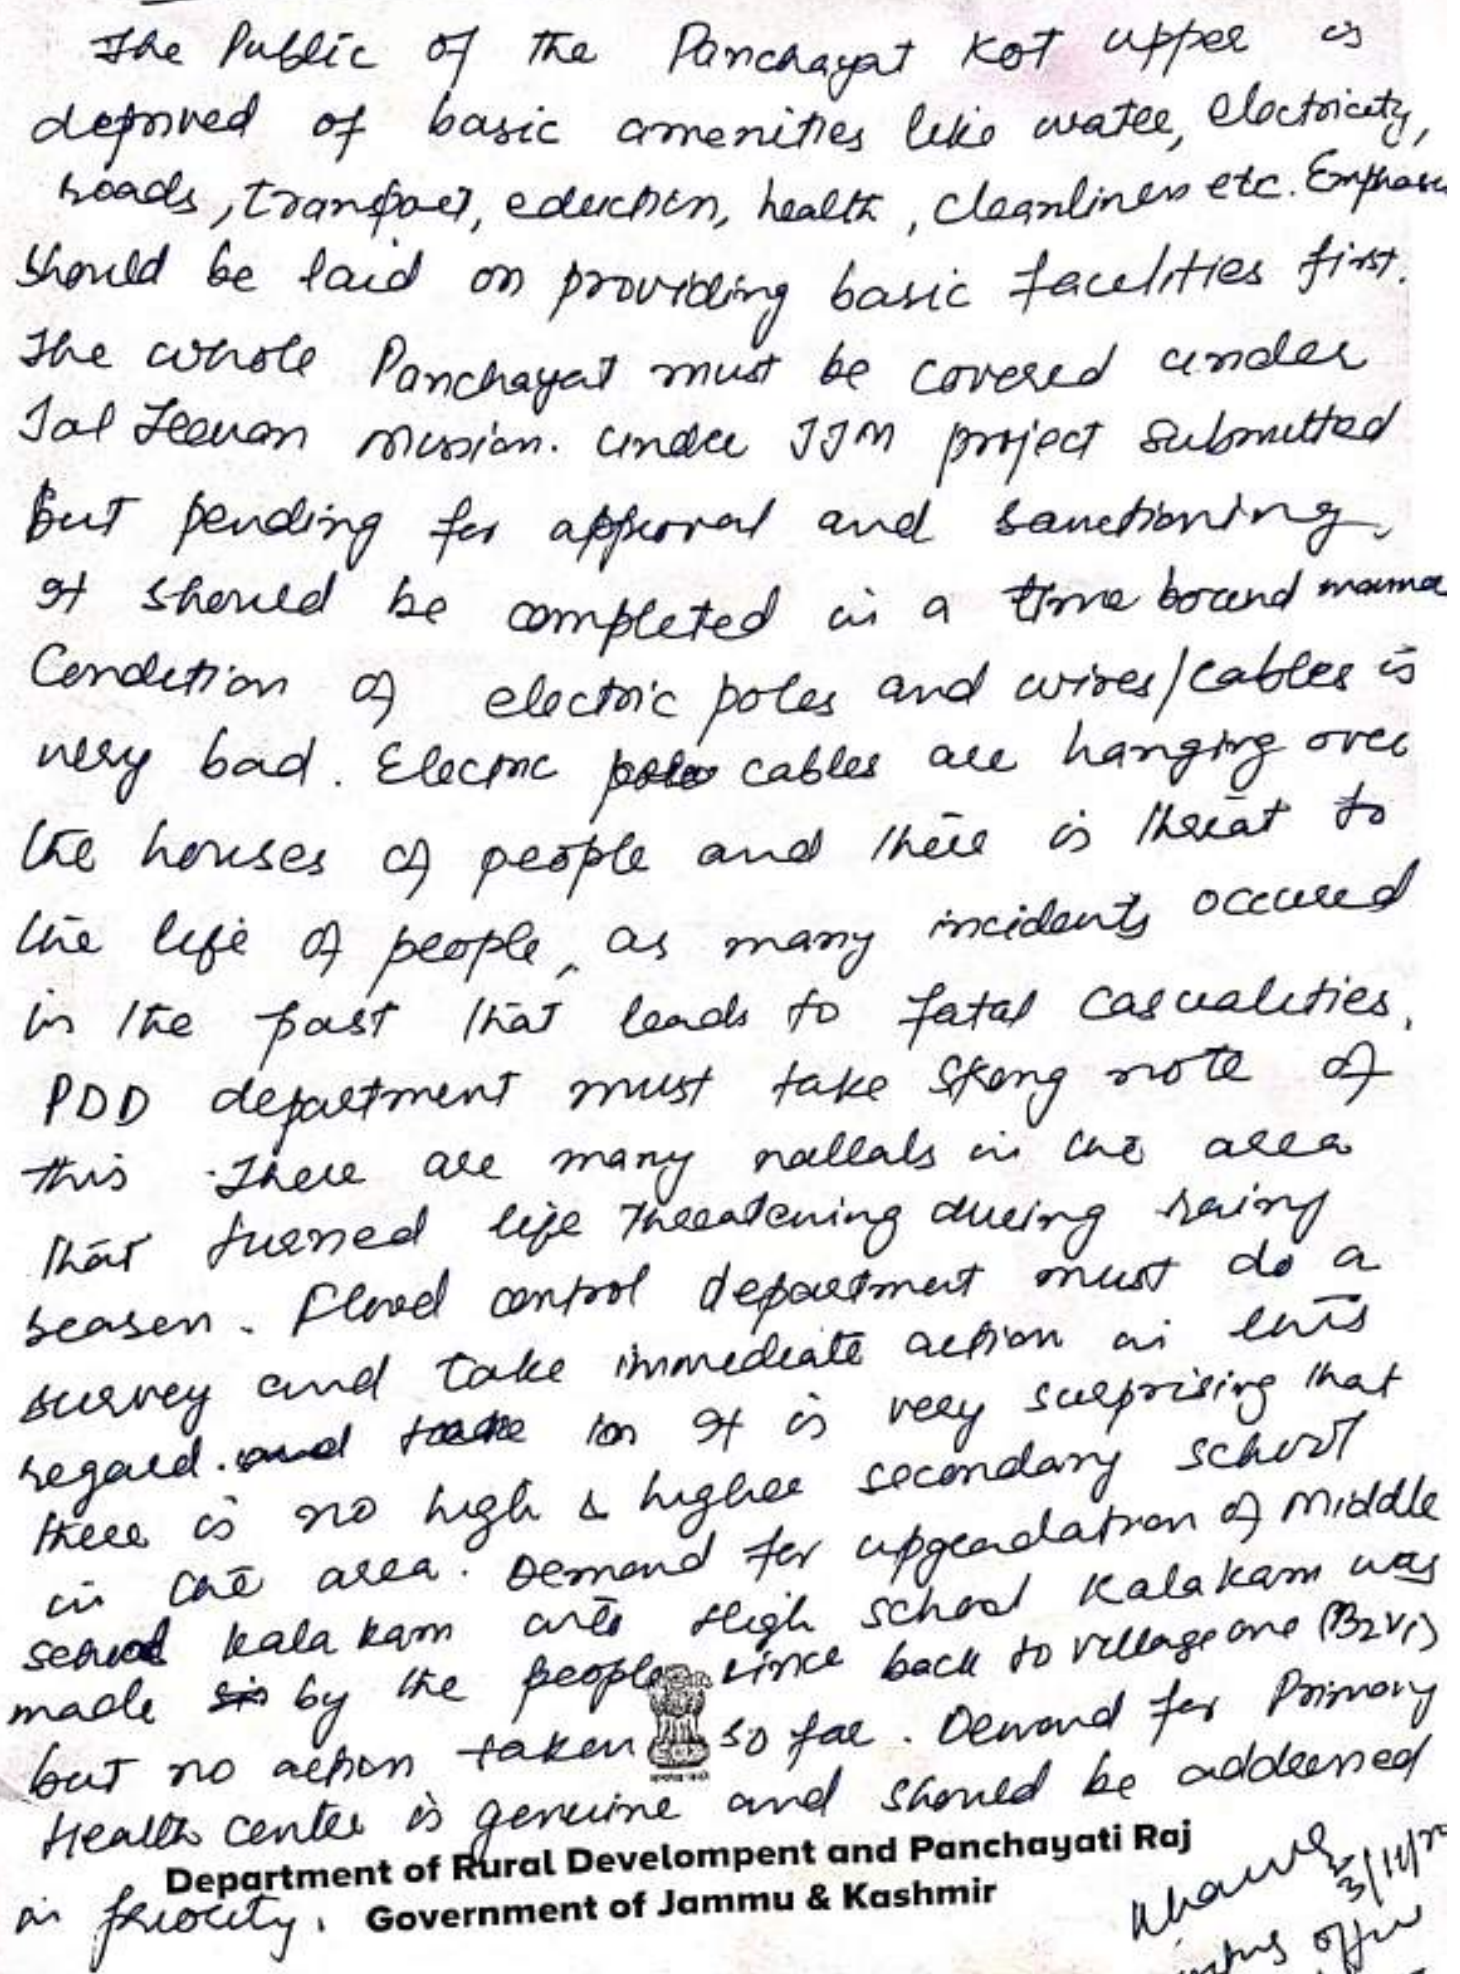 The Public of the Panchayat Kot upper is
deprived of basic amenities like water, electricity,
roads, transport, eduction, health, cleanliness etc. Emphasis
should be laid on providing basic facilities first.
The whole Panchayat must be covered under
Jal Jeevan Mission. Under JJM project submitted
but pending for approval and sanctioning.
It should be completed in a time bound manner
Condition of electric poles and wires/cables is
very bad. Electric cables are hanging over
the houses of people and there is threat to
the life of people, as many incidents occured
in the past that leads to fatal casualities.
PDD department must take strong note of
this. There are many nallahs in the area
that turned life threatening during rainy
season. Flood control department must do a
survey and take immediate action in this
regard. and take in It is very surprising that
there is no high & higher secondary school
in the area. Demand for upgradation of Middle
school Kalakam into High school Kalakam was
made by the people since back to village one (B2V1)
but no action taken so far. Demand for Primary
Health center is genuine and should be addressed
Department of Rural Develompent and Panchayati Raj
in priority.
Government of Jammu & Kashmir
3/11/20